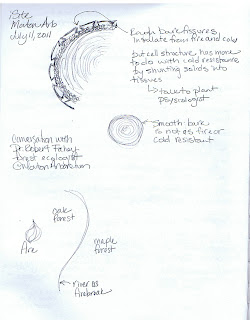 iSite
Morton Arb
July 11, 2011
Rough bark fissures
insulate from fire and cold
but cell structure has more
to do with cold resistance
by shunting solids into
tissues
↳ talk to plant
physiologist
Smooth bark
is not as fire or
cold resistant
Conversation with
Dr. Robert
forest ecologist
@ Morton Arboretum
oak
forest
fire
maple
forest
river as
firebreak